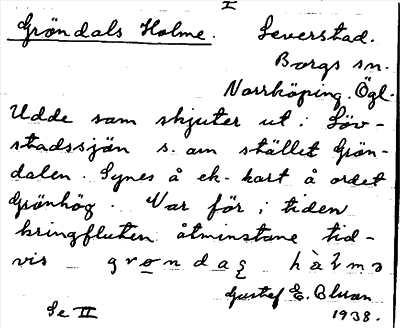 I
Gröndals Holme. Leverstad.
Borgs sn.
Norrköping. Ögl.
Udde som skjuter ut i Löv-
stadssjön s. om stället Grön-
dalen. Synes å ek. kart å ordet
Grönhög. Var för i tiden
kringfluten åtminstone tid-
vis grøndaɷ hàlmə
Gustaf E. Bluan
Se II 1938.